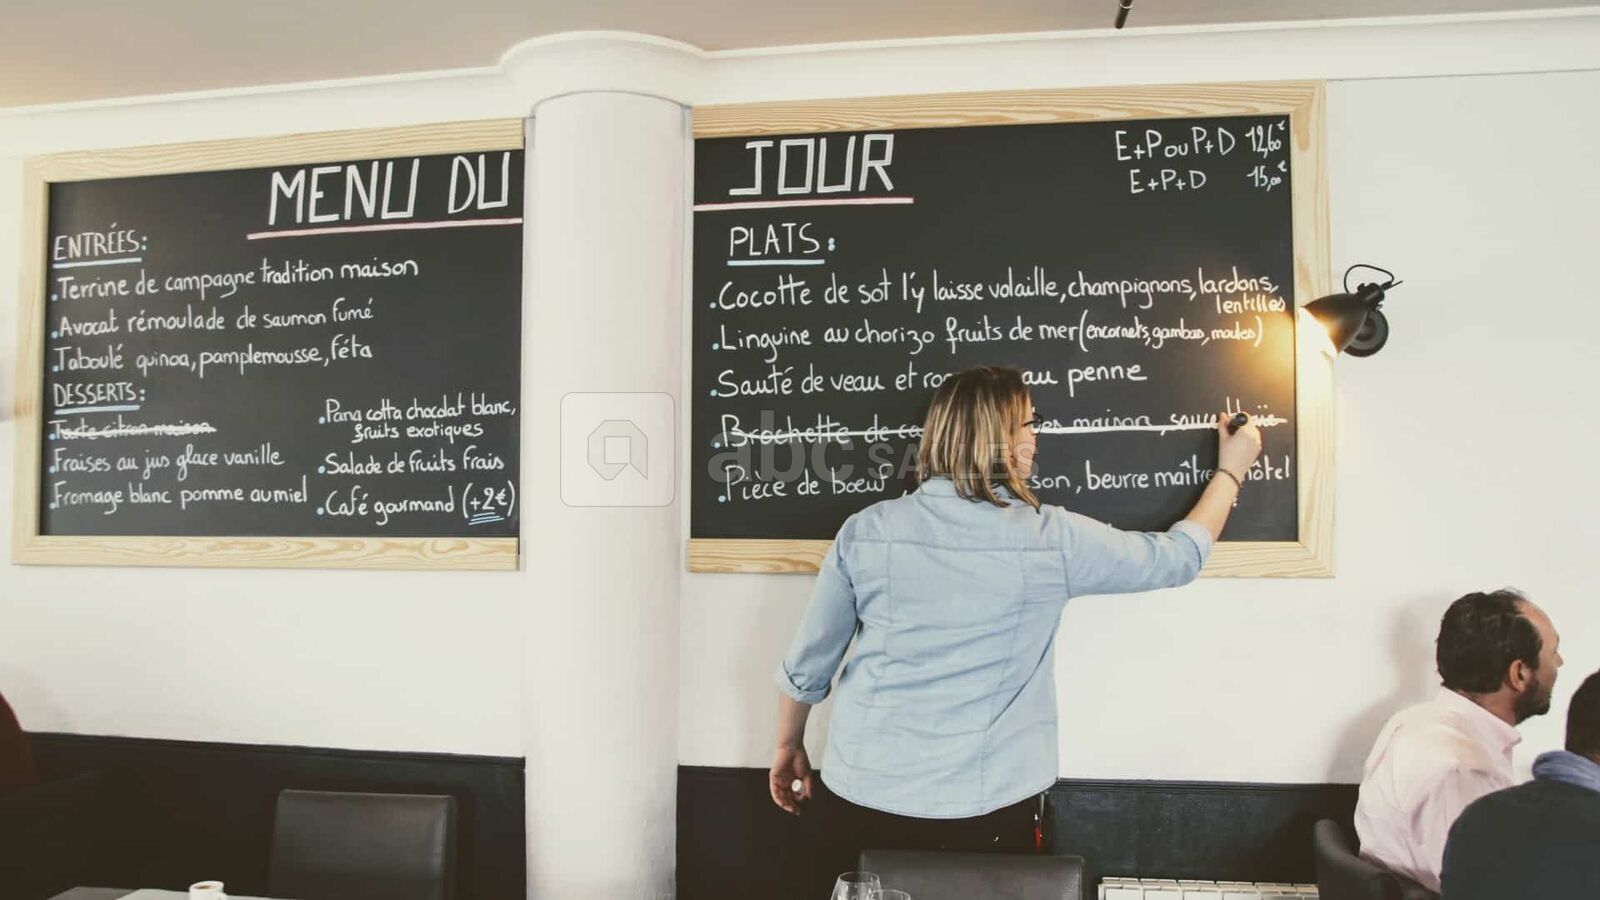 MENU DU
ENTRÉES:
.Terrine de campagne tradition maison
.Avocat rémoulade de saumon fumé
.Taboulé quinoa, pamplemousse, féta
DESSERTS:
.Tarte citron maison
.Fraises au jus glace vanille
.Fromage blanc pomme au miel
.Pana cotta chocolat blanc,
fruits exotiques
.Salade de fruits frais
.Café gourmand (+2€)
JOUR
E+P ou P+D 12,60€
E+P+D 15,00€
PLATS:
.Cocotte de sot l'y laisse volaille, champignons, lardons,
lentilles
.Linguine au chorizo fruits de mer (encornets, gambas, moules)
.Sauté de veau et au penne
.Brochette de maison, sauce
.Pièce de bœuf beurre maître hôtel
abc SALLES